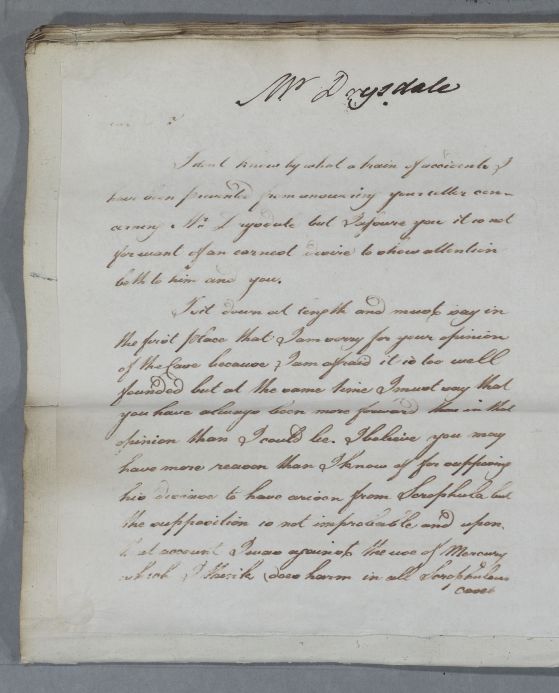 Mr Drysdale
I dont know by what a train of accidents I
have been prevented from answering your letter con-
cerning Mr. Drysdale but I assure you it is not
for want of an earnest desire to show attention
both to him and you.
I sit down at length and must say in
the first place that I am sorry for your opinion
of the Case because I am afraid it is too well
founded but at the same time I must say that
you have always been more forward in that
opinion than I could be. I believe you may
have more reason than I know of for supposing
his disease to have arisen from Scrophula but
the supposition is not improbable and upon
that account I was against the use of Mercury
which I think does harm in all Scrophulous
cases